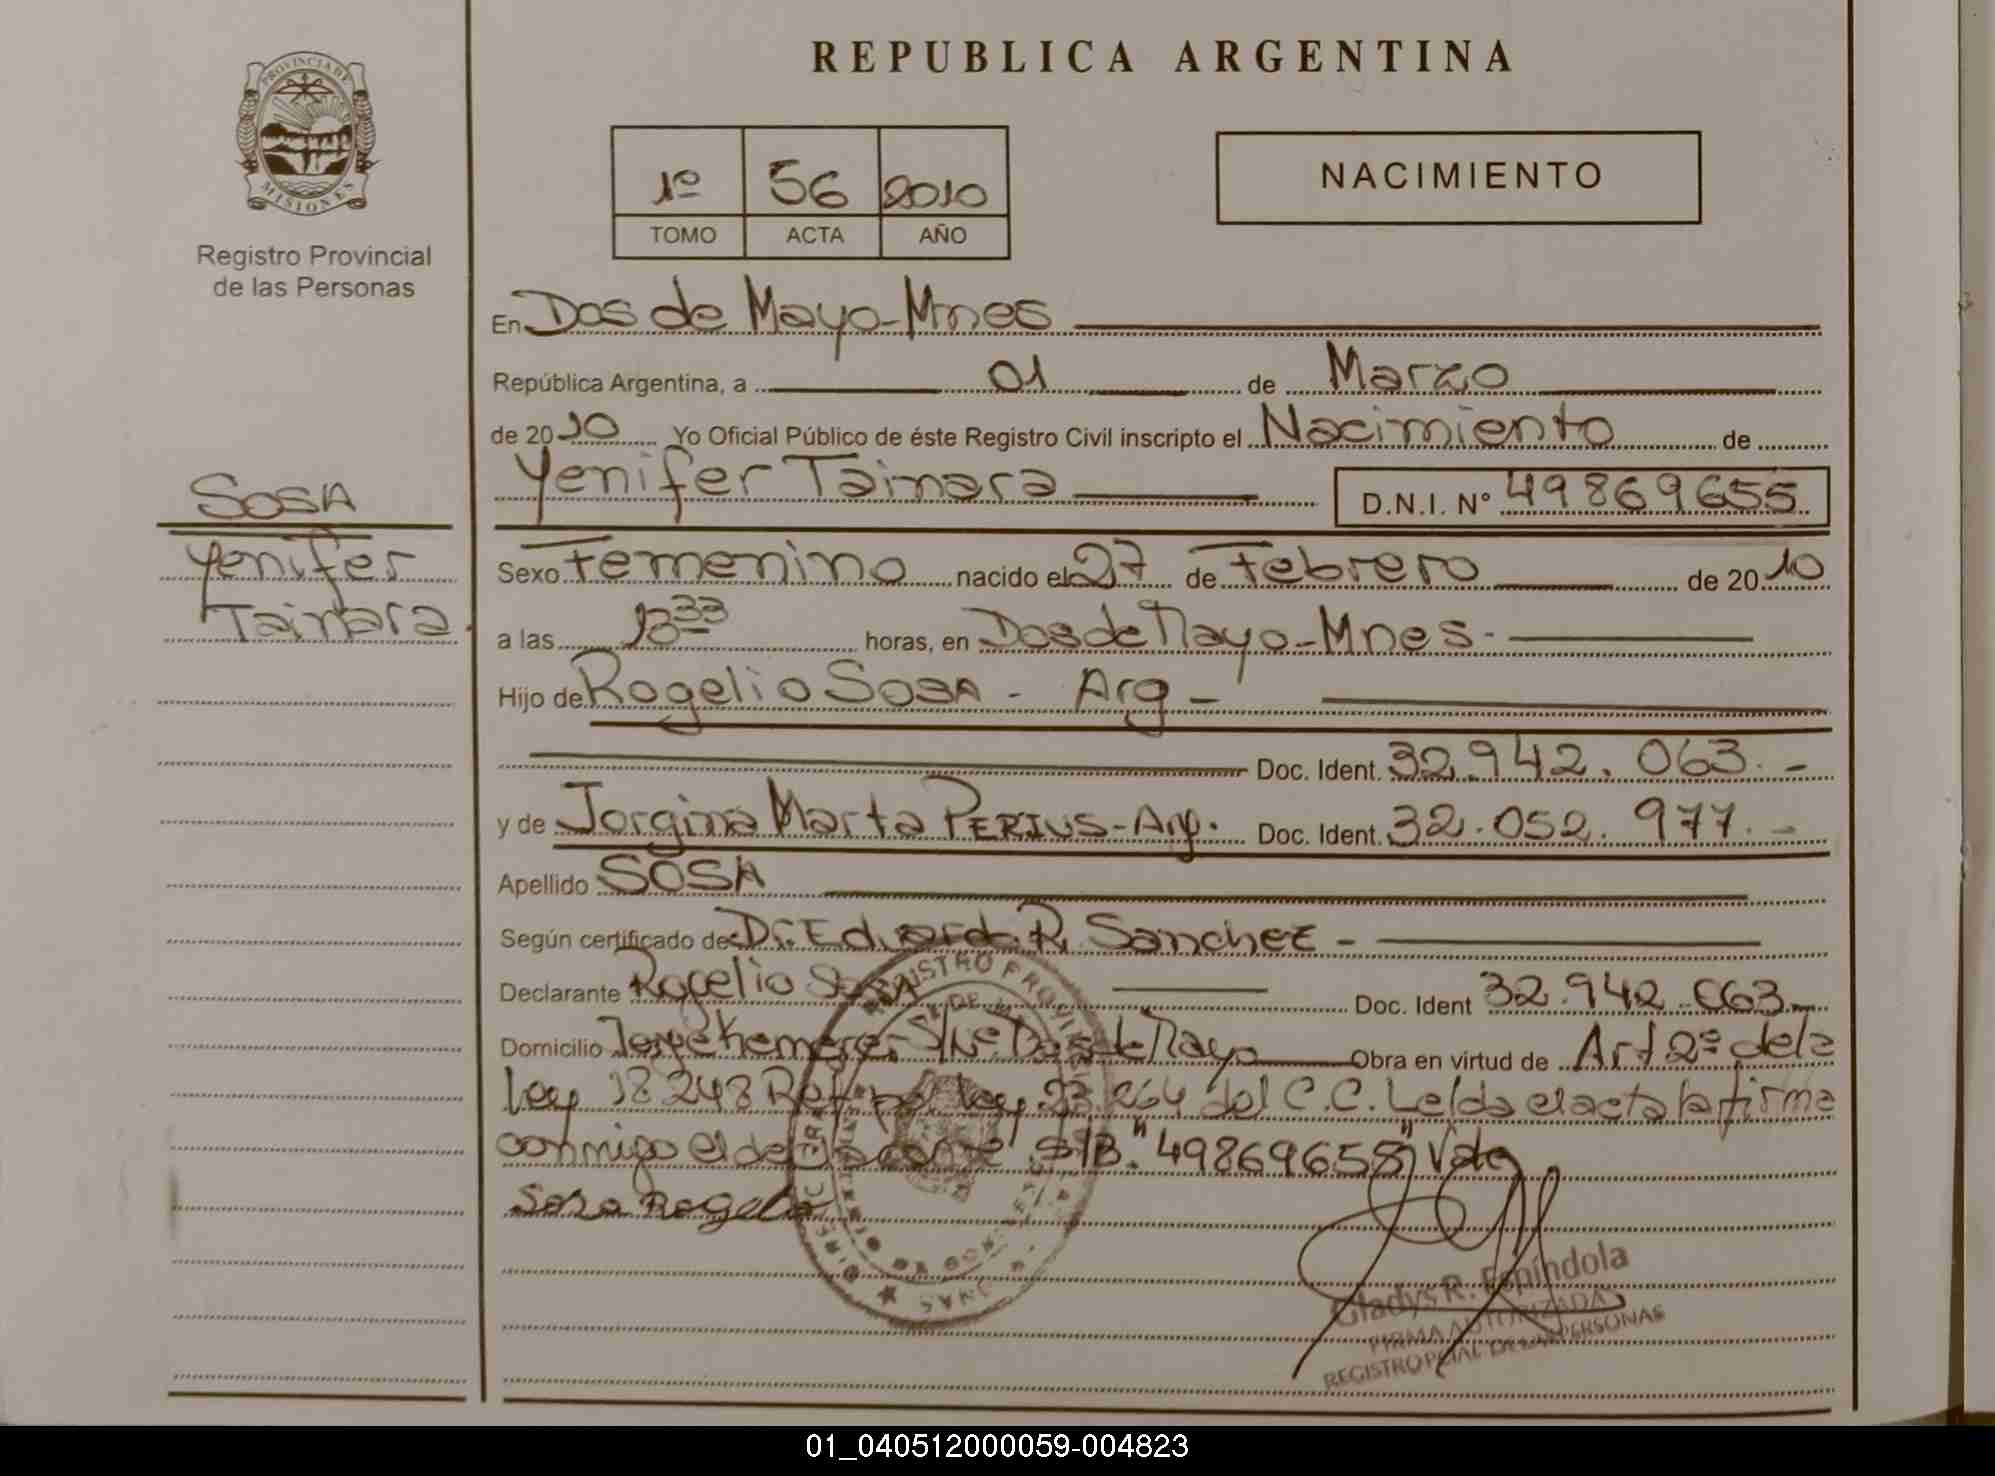 REPUBLICA ARGENTINA
PROVINCIA DE MISIONES
Registro Provincial
de las Personas
1º 56 2010
TOMO ACTA AÑO
NACIMIENTO
SOSA
Yenifer
Tainara
En Dos de Mayo-Mnes
República Argentina, a 01 de Marzo
de 2010 Yo Oficial Público de éste Registro Civil inscripto el Nacimiento de
Yenifer Tainara D.N.I. Nº 49869655
Sexo Femenino nacido el 27 de Febrero de 2010
a las horas, en Dos de Mayo-Mnes-
Hijo de Rogelio SOSA - Arg -
Doc. Ident. 32.942.063.-
y de Jorgina Marta PERIUS-Arg. Doc. Ident. 32.052.977.-
Apellido SOSA
Según certificado de Dr. Eduardo R. Sanchez -
Declarante Rogelio SOSA Doc. Ident 32.942.063.-
Domicilio Kemerer S/Nº Dos de Mayo Obra en virtud de Art 2º de la
Ley 18248 Ref. por Ley 23.264 del C.C. Leída el acta la firma
conmigo el declarante S/B. "49869658" Vale
Sosa Rogelio
Gladys R. Espíndola
FIRMA AUTORIZADA
REGISTRO PCIAL DE LAS PERSONAS
01_040512000059-004823